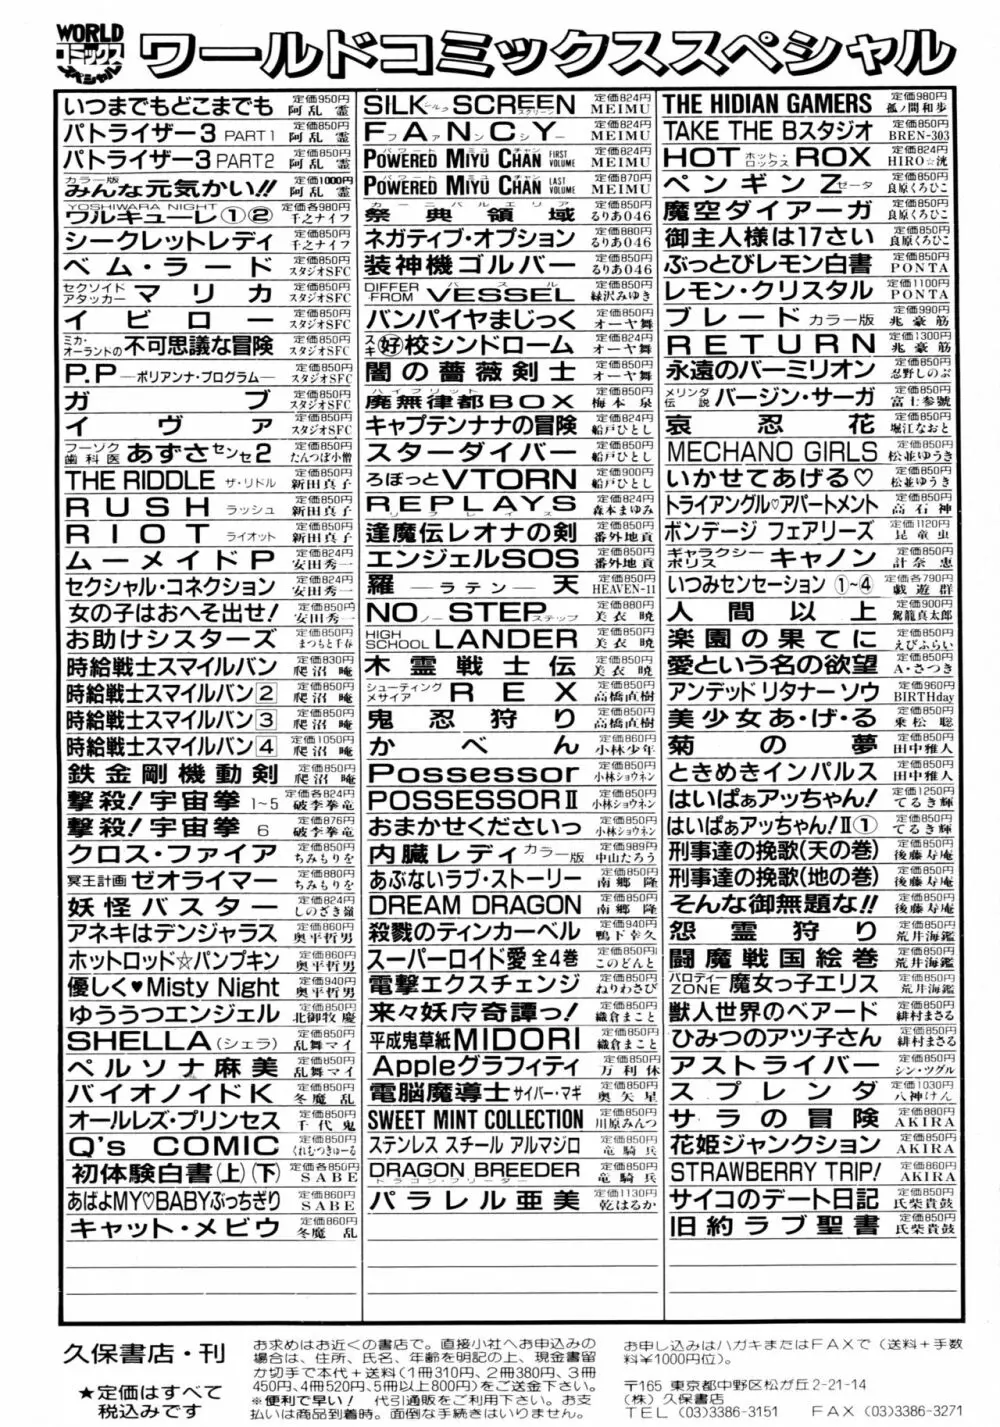 WORLD
コミックス
スペシャル
ワールドコミックススペシャル
いつまでもどこまでも 定価950円 阿乱霊
パトライザー3 PART1 定価850円 阿乱霊
パトライザー3 PART2 定価850円 阿乱霊
カラー版 みんな元気かい!! 定価1000円 阿乱霊
YOSHIWARA NIGHT ワルキューレ①② 定価各980円 千之ナイフ
シークレットレディ 定価850円 千之ナイフ
ベム・ラード 定価850円 スタジオSFC
セクソイドアタッカー マリカ 定価850円 スタジオSFC
イビロー 定価850円 スタジオSFC
ミカ・オーラントの不可思議な冒険 定価850円 スタジオSFC
P.P ―ポリアンナ・プログラム― 定価850円 スタジオSFC
ガブ 定価850円 スタジオSFC
イヴァ 定価850円 スタジオSFC
フーゾク歯科医 あずさセンセ2 定価850円 たんつぼ小僧
THE RIDDLE ザ・リドル 定価850円 新田真子
RUSH ラッシュ 定価850円 新田真子
RIOT ライオット 定価850円 新田真子
ムーメイドP 定価824円 安田秀一
セクシャル・コネクション 定価824円 安田秀一
女の子はおへそ出せ! 定価850円 安田秀一
お助けシスターズ 定価850円 まつもと千春
時給戦士スマイルバン 定価830円 爬沼唵
時給戦士スマイルバン2 定価850円 爬沼唵
時給戦士スマイルバン3 定価850円 爬沼唵
時給戦士スマイルバン4 定価1050円 爬沼唵
鉄金剛機動剣 定価850円 爬沼唵
撃殺!宇宙拳 1~5 定価各824円 破李拳竜
撃殺!宇宙拳 6 定価876円 破李拳竜
クロス・ファイア 定価850円 ちみもりを
冥王計画 ゼオライマー 定価880円 ちみもりを
妖怪バスター 定価824円 しのざき嶺
アネキはデンジャラス 定価860円 奥平哲男
ホットロッド☆パンプキン 定価860円 奥平哲男
優しく♥Misty Night 定価940円 奥平哲男
ゆううつエンジェル 定価850円 北御牧慶
SHELLA(シェラ) 定価850円 乱舞マイ
ペルソナ麻美 定価850円 乱舞マイ
バイオノイドK 定価850円 冬魔乱
オールレズ・プリンセス 定価850円 千代鬼
Q's COMIC 定価850円 くれむつきゅーる
初体験白書(上)(下) 定価各850円 SABE
あばよMY♡BABYぶっちぎり 定価860円 SABE
キャット・メビウ 定価860円 冬魔乱
SILK シルク SCREEN スクリーン 定価824円 MEIMU
FANCY ファンシー 定価824円 MEIMU
POWERED MIYU CHAN パワード ミユ FIRST VOLUME 定価824円 MEIMU
POWERED MIYU CHAN パワード ミユ LAST VOLUME 定価870円 MEIMU
祭典領域 カーニバルエリア 定価850円 るりあ046
ネガティブ・オプション 定価880円 るりあ046
装神機ゴルバー 定価850円 るりあ046
DIFFER-FROM VESSEL 定価850円 緑沢みゆき
バンパイヤまじっく 定価850円 オーヤ舞
スキ好校シンドローム 定価824円 オーヤ舞
闇の薔薇剣士 定価850円 オーヤ舞
廃無律都BOX ハイブリット 定価850円 梅本泉
キャプテンナナの冒険 定価824円 船戸ひとし
スターダイバー 定価850円 船戸ひとし
ろぼっとVTORN 定価900円 船戸ひとし
REPLAYS リプレイズ 定価824円 森本まゆみ
逢魔伝レオナの剣 定価850円 番外地貢
エンジェルSOS 定価850円 番外地貢
羅―ラテン―天 定価850円 HEAVEN-11
NO ノー STEP ステップ 定価880円 美衣暁
HIGH SCHOOL LANDER 定価850円 美衣暁
木霊戦士伝 定価850円 美衣暁
シューティングメサイア REX 定価850円 高橋直樹
鬼忍狩り 定価850円 高橋直樹
かべん 定価860円 小林少年
Possessor 定価850円 小林ショウネン
POSSESSORⅡ 定価850円 小林ショウネン
おまかせくださいっ 定価850円 小林ショウネン
内臓レディ カラー版 定価989円 中山たろう
あぶないラブ・ストーリー 定価850円 南郷隆
DREAM DRAGON 定価850円 南郷隆
殺戮のティンカーベル 定価940円 鴨下幸久
スーパーロイド愛 全4巻 定価850円 このどんと
電撃エクスチェンジ 定価850円 ねりわさび
来々妖序奇譚っ! 定価850円 織倉まこと
平成鬼草紙MIDORI 定価850円 織倉まこと
Appleグラフィティ 定価850円 万利休
電脳魔導士 サイバー・マギ 定価850円 奥矢星
SWEET MINT COLLECTION 定価850円 川原みんつ
ステンレス スチール アルマジロ 定価850円 竜騎兵
DRAGON BREEDER ドラゴン・ブリーダー 定価850円 竜騎兵
パラレル亜美 定価1130円 乾はるか
THE HIDIAN GAMERS 定価980円 孤ノ間和歩
TAKE THE Bスタジオ 定価850円 BREN-303
HOT ホット・ロックス ROX 定価824円 HIRO☆洸
ペンギンZ ゼータ 定価850円 良原くろひこ
魔空ダイアーガ 定価850円 良原くろひこ
御主人様は17さい 定価850円 良原くろひこ
ぶっとびレモン白書 定価850円 PONTA
レモン・クリスタル 定価1100円 PONTA
ブレード カラー版 定価990円 兆豪筋
RETURN 定価1300円 兆豪筋
永遠のバーミリオン 定価850円 忍野しのぶ
メリンダ伝説 バージン・サーガ 定価850円 富士参號
哀忍花 定価850円 堀江なおと
MECHANO GIRLS 定価850円 松並ゆうき
いかせてあげる♡ 定価850円 松並ゆうき
トライアングル♡アパートメント 定価850円 高石神
ボンデージ フェアリーズ 定価1120円 昆童虫
ギャラクシーポリス キャノン 定価850円 計奈恵
いつみセンセーション ①~④ 定価各790円 戯遊群
人間以上 定価900円 駕籠真太郎
楽園の果てに 定価850円 えびふらい
愛という名の欲望 定価850円 A・さつき
アンデッド リタナー ソウ 定価960円 BIRTHday
美少女あ・げ・る 定価850円 乗松聡
菊の夢 定価850円 田中雅人
ときめきインパルス 定価850円 田中雅人
はいぱぁアッちゃん! 定価1250円 てるき輝
はいぱぁアッちゃん!Ⅱ① 定価850円 てるき輝
刑事達の挽歌(天の巻) 定価850円 後藤寿庵
刑事達の挽歌(地の巻) 定価850円 後藤寿庵
そんな御無題な!! 定価850円 後藤寿庵
怨霊狩り 定価850円 荒井海鑑
闘魔戦国絵巻 定価850円 荒井海鑑
パロディーZONE 魔女っ子エリス 定価850円 荒井海鑑
獣人世界のベアード 定価850円 緋村まさる
ひみつのアツ子さん 定価850円 緋村まさる
アストライバー 定価850円 シン・ツグル
スプレンダ 定価1030円 八神けん
サラの冒険 定価880円 AKIRA
花姫ジャンクション 定価850円 AKIRA
STRAWBERRY TRIP! 定価860円 AKIRA
サイコのデート日記 定価850円 氏柴貴鼓
旧約ラブ聖書 定価850円 氏柴貴鼓
久保書店・刊
★定価はすべて
税込みです
お求めはお近くの書店で。直接小社へお申込みの
場合は、住所、氏名、年齢を明記の上、現金書留
か切手で本代+送料(1冊310円、2冊380円、3冊
450円、4冊520円、5冊以上800円)をご送金下さい。
※便利で早い! 代引通販をご利用下さい。お支
払いは商品到着時。面倒な手続きはいりません。
お申し込みはハガキまたはFAXで(送料+手数
料¥1000円位)。
〒165 東京都中野区松が丘2-21-14
(株)久保書店
TEL (03)3386-3151 FAX (03)3386-3271